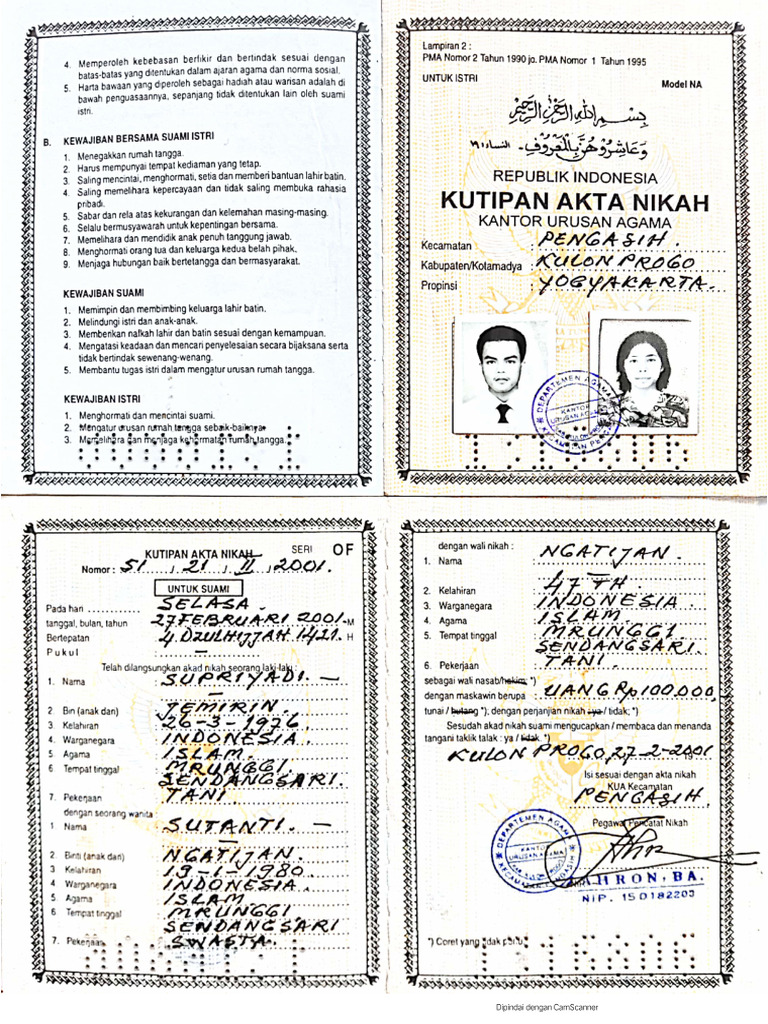 4. Memperoleh kebebasan berfikir dan bertindak sesuai dengan
batas-batas yang ditentukan dalam ajaran agama dan norma sosial.
5. Harta bawaan yang diperoleh sebagai hadiah atau warisan adalah di
bawah penguasaannya, sepanjang tidak ditentukan lain oleh suami
istri.
B. KEWAJIBAN BERSAMA SUAMI ISTRI
1. Menegakkan rumah tangga.
2. Harus mempunyai tempat kediaman yang tetap.
3. Saling mencintai, menghormati, setia dan memberi bantuan lahir batin.
4. Saling memelihara kepercayaan dan tidak saling membuka rahasia
pribadi.
5. Sabar dan rela atas kekurangan dan kelemahan masing-masing.
6. Selalu bermusyawarah untuk kepentingan bersama.
7. Memelihara dan mendidik anak penuh tanggung jawab.
8. Menghormati orang tua dan keluarga kedua belah pihak.
9. Menjaga hubungan baik bertetangga dan bermasyarakat.
KEWAJIBAN SUAMI
1. Memimpin dan membimbing keluarga lahir batin.
2. Melindungi istri dan anak-anak.
3. Memberikan nafkah lahir dan batin sesuai dengan kemampuan.
4. Mengatasi keadaan dan mencari penyelesaian secara bijaksana serta
tidak bertindak sewenang-wenang.
5. Membantu tugas istri dalam mengatur urusan rumah tangga.
KEWAJIBAN ISTRI
1. Menghormati dan mencintai suami.
2. Mengatur urusan rumah tangga sebaik-baiknya.
3. Memelihara dan menjaga kehormatan rumah tangga.
Lampiran 2 :
PMA Nomor 2 Tahun 1990 jo. PMA Nomor 1 Tahun 1995
UNTUK ISTRI
Model NA
بسم الله الرحمن الرحيم
وعاشروهن بالمعروف - النساء ١٩
REPUBLIK INDONESIA
KUTIPAN AKTA NIKAH
KANTOR URUSAN AGAMA
Kecamatan : PENGASIH.
Kabupaten/Kotamadya : KULON PROGO
Propinsi : YOGYAKARTA.
DEPARTEMEN AGAMA
KANTOR
URUSAN AGAMA
KECAMATAN PENGASIH
KUTIPAN AKTA NIKAH
SERI OF
Nomor : 51 / 21 / II / 2001.
UNTUK SUAMI
Pada hari ............ SELASA.
tanggal, bulan, tahun 27 FEBRUARI 2001. M
Bertepatan 4 DZULHIJJAH 1421. H
Pukul : —
Telah dilangsungkan akad nikah seorang laki-laki :
1. Nama : SUPRIYADI. —
—
2. Bin (anak dari) : TEMIRIN.
3. Kelahiran : 26-3-1976
4. Warganegara : INDONESIA.
5. Agama : ISLAM.
6. Tempat tinggal : MRUNGGI
SENDANGSARI.
7. Pekerjaan : TANI
dengan seorang wanita :
1 Nama : SUTANTI. —
—
2. Binti (anak dari) : NGATIJAN.
3 Kelahiran : 19-1-1980
4 Warganegara : INDONESIA
5. Agama : ISLAM
6 Tempat tinggal : MRUNGGI
SENDANGSARI
7. Pekerjaan : SWASTA.
dengan wali nikah :
1. Nama : NGATIJAN.
—
2. Kelahiran : 47 TH.
3. Warganegara : INDONESIA
4. Agama : ISLAM.
5. Tempat tinggal : MRUNGGI
SENDANGSARI.
6. Pekerjaan : TANI
sebagai wali nasab/hakim; *)
dengan maskawin berupa : UANG Rp 100.000,
tunai / hutang *); dengan perjanjian nikah ya / tidak; *)
Sesudah akad nikah suami mengucapkan / membaca dan menanda
tangani taklik talak : ya / tidak. *)
KULON PROGO, 27-2-2001
Isi sesuai dengan akta nikah
KUA Kecamatan
PENGASIH.
Pegawai Pencatat Nikah
DEPARTEMEN AGAMA
KANTOR
URUSAN AGAMA
HRON, BA.
NIP. 150182203
*) Coret yang tidak perlu
Dipindai dengan CamScanner